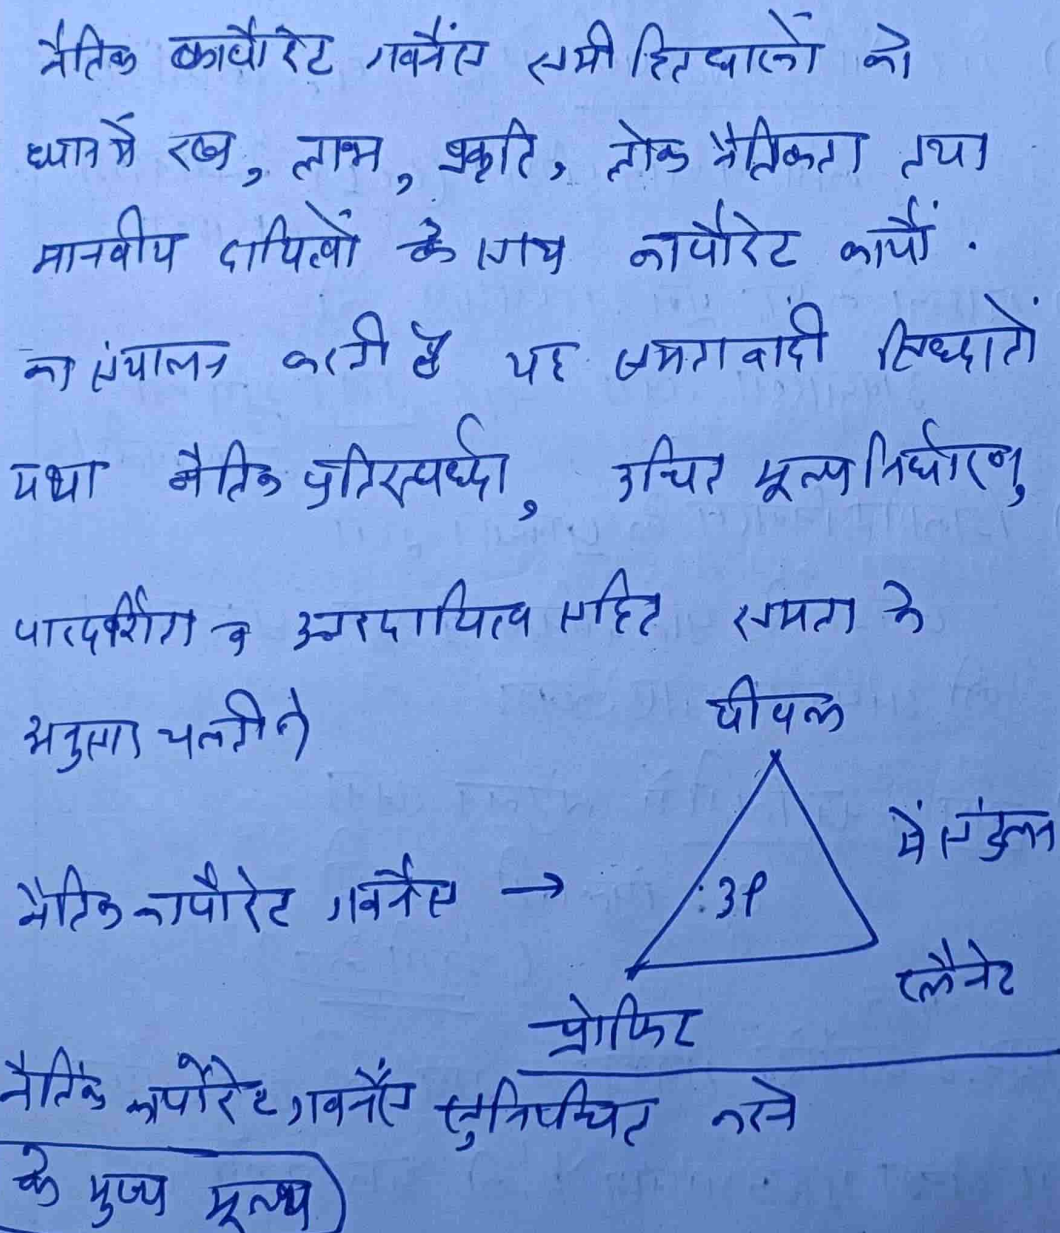 नैतिक कार्पोरेट गवर्नेंस सभी हितधारकों को
ध्यान में रख, लाभ, प्रकृति, लोक नैतिकता तथा
मानवीय दायित्वों के साथ कार्पोरेट कार्यों
का संचालन करती है यह समतावादी सिध्दांतों
यथा नैतिक प्रतिस्पर्ध्दा, उचित मूल्य निर्धारण,
पारदर्शिता व उत्तरदायित्व सहित समता के
अनुसार चलती है
पीपल
में संतुलन
नैतिक कार्पोरेट गवर्नेंस →
3P
प्लैनेट
प्रोफिट
नैतिक कार्पोरेट गवर्नेंस सुनिश्चित करने
के मुख्य मूल्य